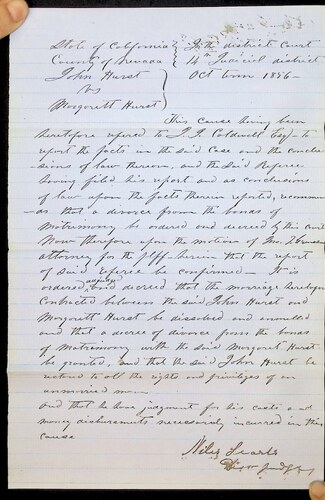 State of California
County of Nevada
In the district Court
14th Judicial district
Oct term 1856
John Hurst
vs
Margarett Hurst
This cause being been
heretofore refered to J. I. Caldwell Esq to
report the facts in the said Case and the conclu
sions of law thereon, and the said Referee
having filed his report and as conclusions
of law upon the facts therein reported, recomme
as that a divorce from the bonds of
Matrimony be ordered and decreed by this court
Now therefore upon the motion of Mr
attorney for the plff herein that the report
of said referee be confirmed – It is
ordered adjudged and decreed that the marriage heretofore
Contracted between the said John Hurst and
Margarett Hurst be dissolved and annulled
and that a decree of divorce from the bonds
of Matrimony with the said Margarett Hurst
be granted, and that the said John Hurst be
restored to all the rights and privileges of an
unmarried man
and that he have judgment for his costs and
money disbursments necessarily incured in this
cause
Niles Searls
Dist Judge